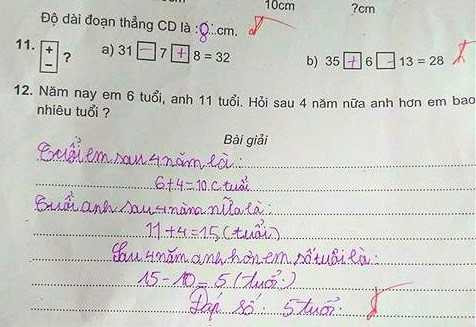 10cm ?cm
Độ dài đoạn thẳng CD là :8..cm.
11. + − ? a) 31 − 7 + 8 = 32 b) 35 + 6 − 13 = 28
12. Năm nay em 6 tuổi, anh 11 tuổi. Hỏi sau 4 năm nữa anh hơn em bao
nhiêu tuổi ?
Bài giải
Tuổi em sau 4 năm là :
6+4=10 ( tuổi
Tuổi anh sau 4 năm nữa là :
11+4=15 ( tuổi)
Sau 4 năm anh hơn em số tuổi là :
15-10=5 (tuổi)
Đáp số : 5 tuổi